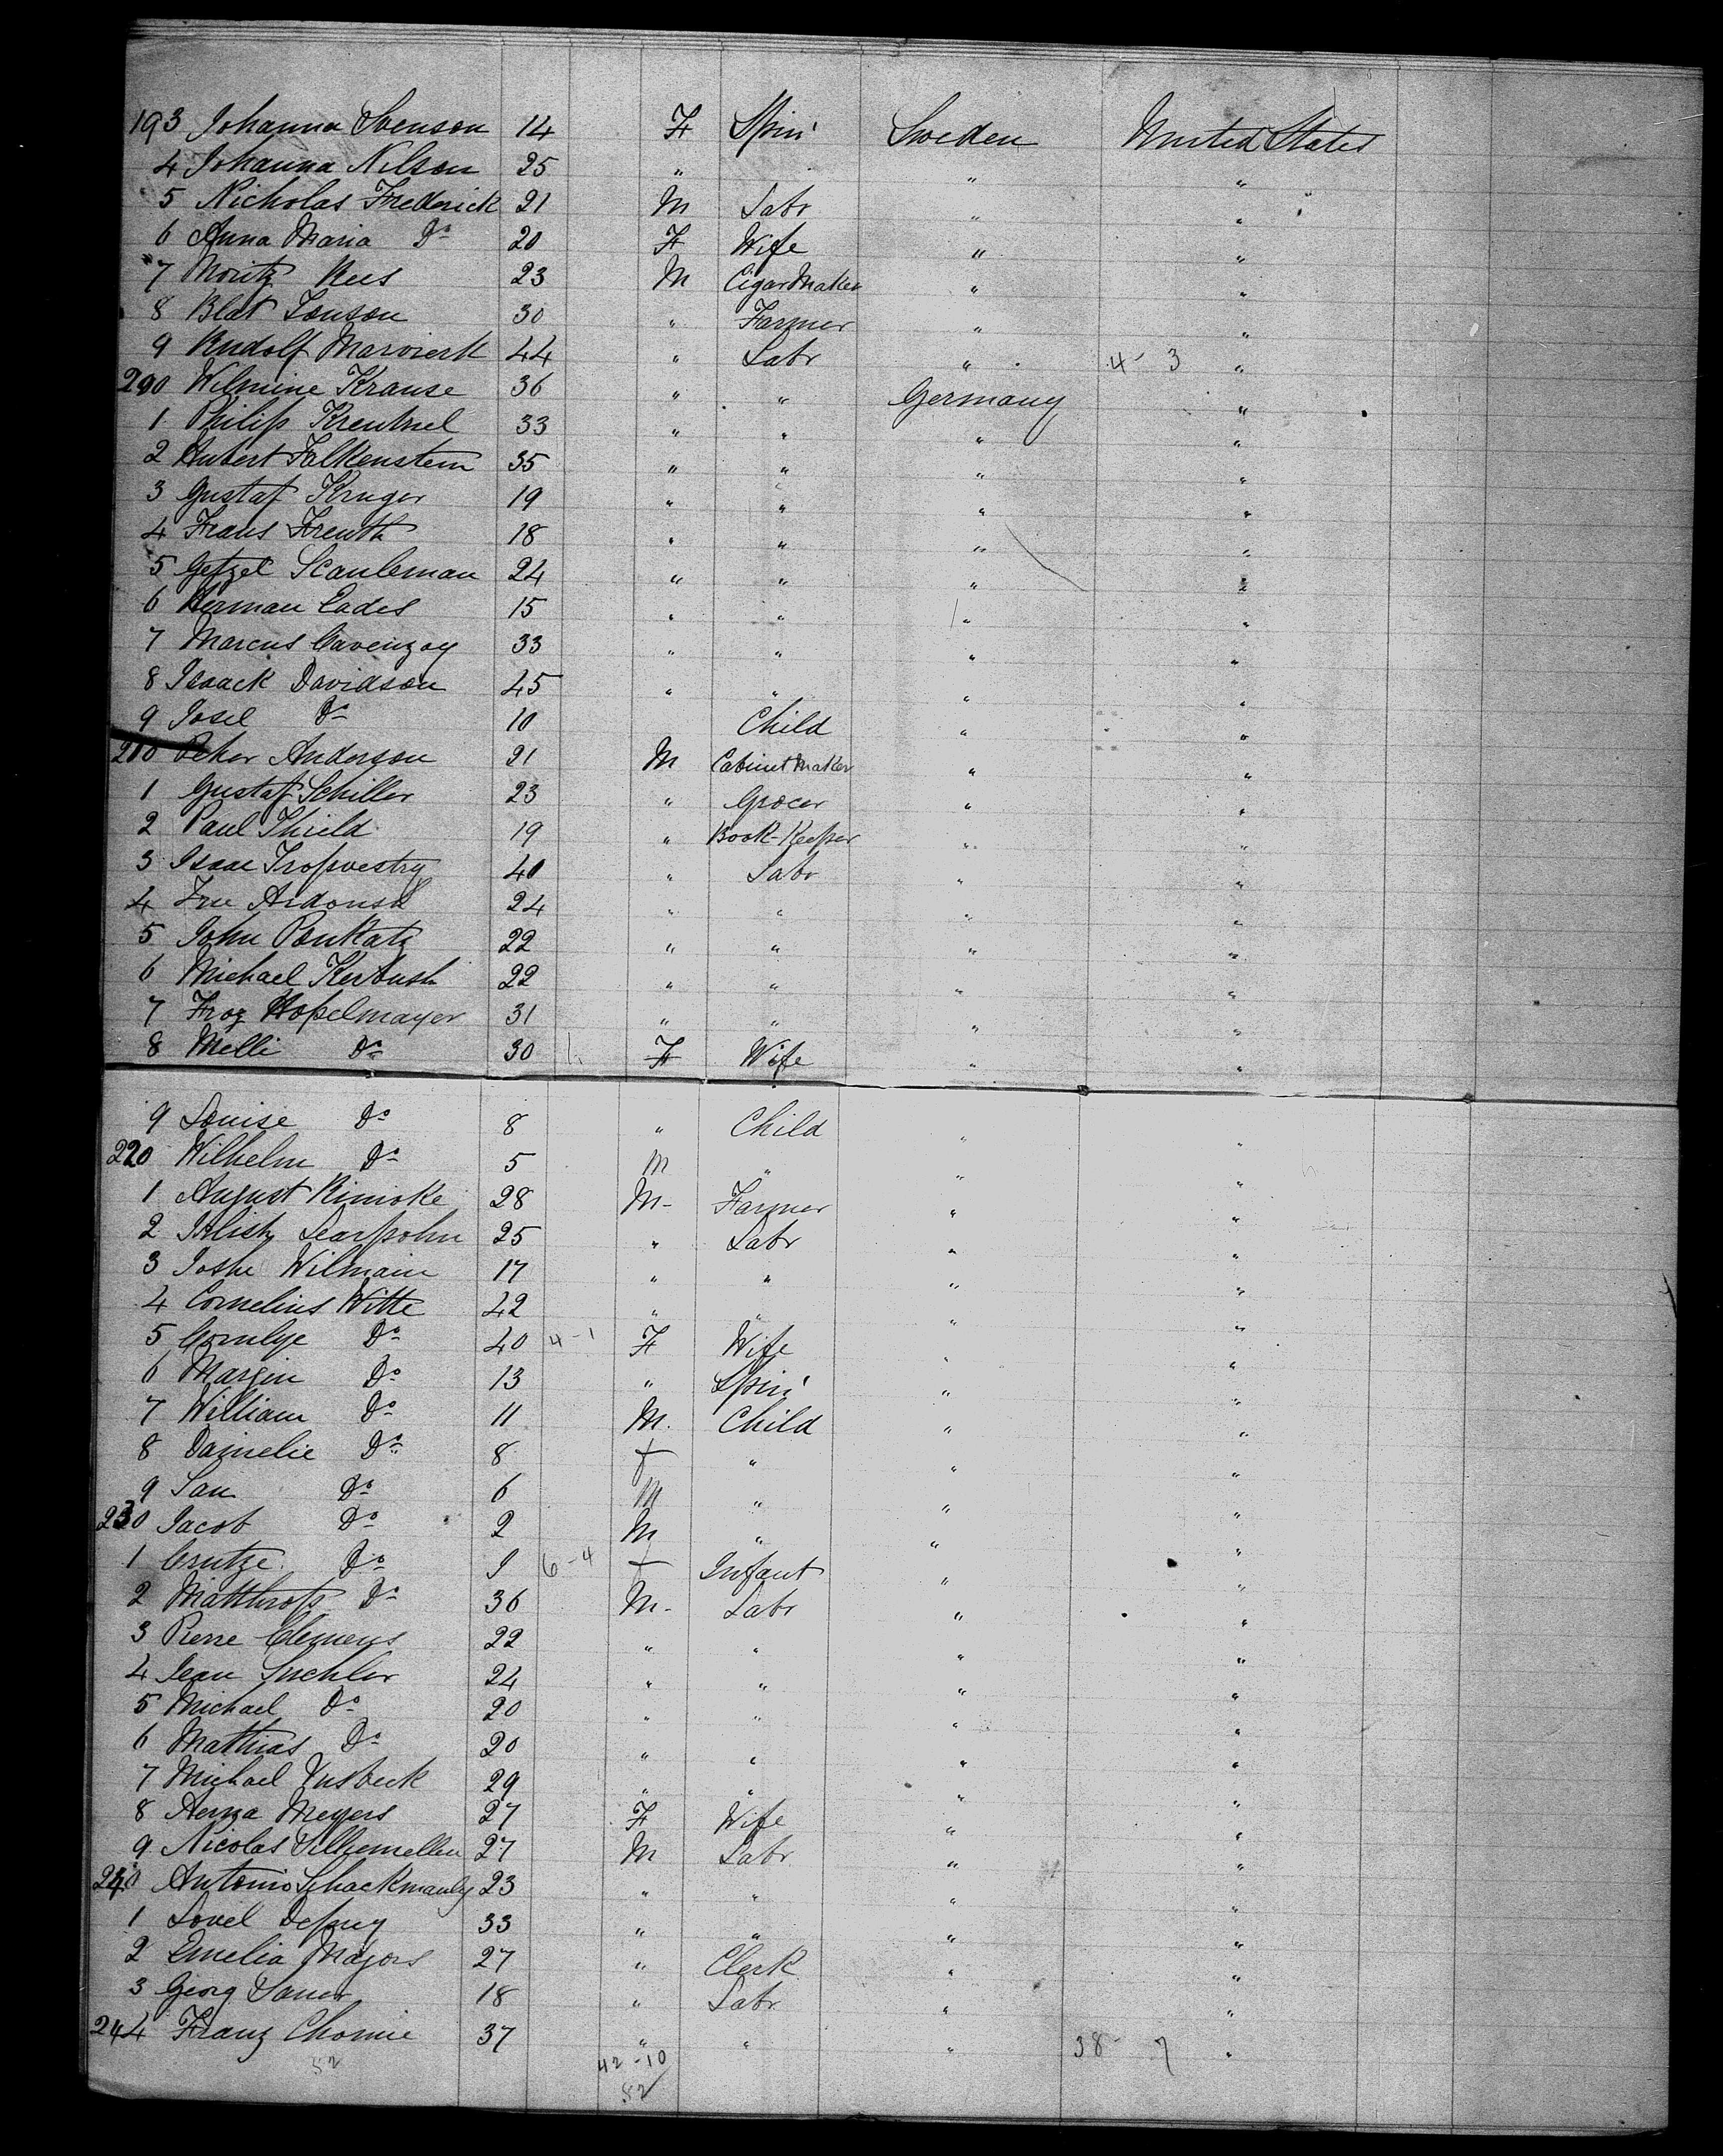 193 Johanna Svenson 14 F Spin' Sweden United States
4 Johanna Nilson 25 " " "
5 Nicholas Frederick 21 M Labr " "
6 Anna Maria Do 20 F Wife " "
7 Moritz Rees 23 M Cigar Maker " "
8 Blat Jonson 30 " Farmer " "
9 Rudolf 44 " Labr " 4-3 "
200 Wilmine Krause 36 " " Germany "
1 Philip 33 " " " "
2 Hubert Falkenstein 35 " " " "
3 Gustaf Kruger 19 " " " "
4 Frans 18 " " " "
5 Getzel Scauleman 24 " " " "
6 Herman Eades 15 " " " "
7 Marcus 33 " " " "
8 Isaack Davidson 45 " " " "
9 Josel Do 10 Child " "
210 Peter Anderson 21 M Cabinet Maker " "
1 Gustaf Schiller 23 " Grocer " "
2 Paul Thield 19 " Book-Keeper " "
3 Isaac 40 " Labr " "
4 24 " " " "
5 John Ponkatz 22 " " " "
6 Michael Kerbush 22 " " " "
7 Froz Hopelmayer 31 " " " "
8 Melli Do 30 F Wife " "
9 Louise Do 8 " Child " "
220 Wilhelm Do 5 M " " "
1 August Rimoke 28 M- Farmer " "
2 25 " Labr " "
3 Joshe Wilmain 17 " " " "
4 Cornelius Witte 42 " " " "
5 Cornlye Do 40 4-1 F Wife " "
6 Margin Do 13 " Spin' " "
7 William Do 11 M. Child " "
8 Damelie Do 8 f " " "
9 Jan Do 6 M " " "
230 Jacob Do 2 M " " "
1 Crutze Do 6-4 f Infant " "
2 Matthrop Do 36 M- Labr " "
3 Pierre Clemens 22 " " " "
4 Jean Suchler 24 " " " "
5 Michael Do 20 " " " "
6 Mathias Do 20 " " " "
7 Michael 29 " " " "
8 Meyers 27 F Wife " "
9 Nicolas 27 M Labr " "
240 Antonio Schackmanly 23 " " " "
1 Lovel Depuy 33 " " " "
2 Emelia Majors 27 " Clerk " "
3 Georg Sauer 18 " Labr " "
244 Franz Chomie 37 " " " 38-7 "
52 42-10
52